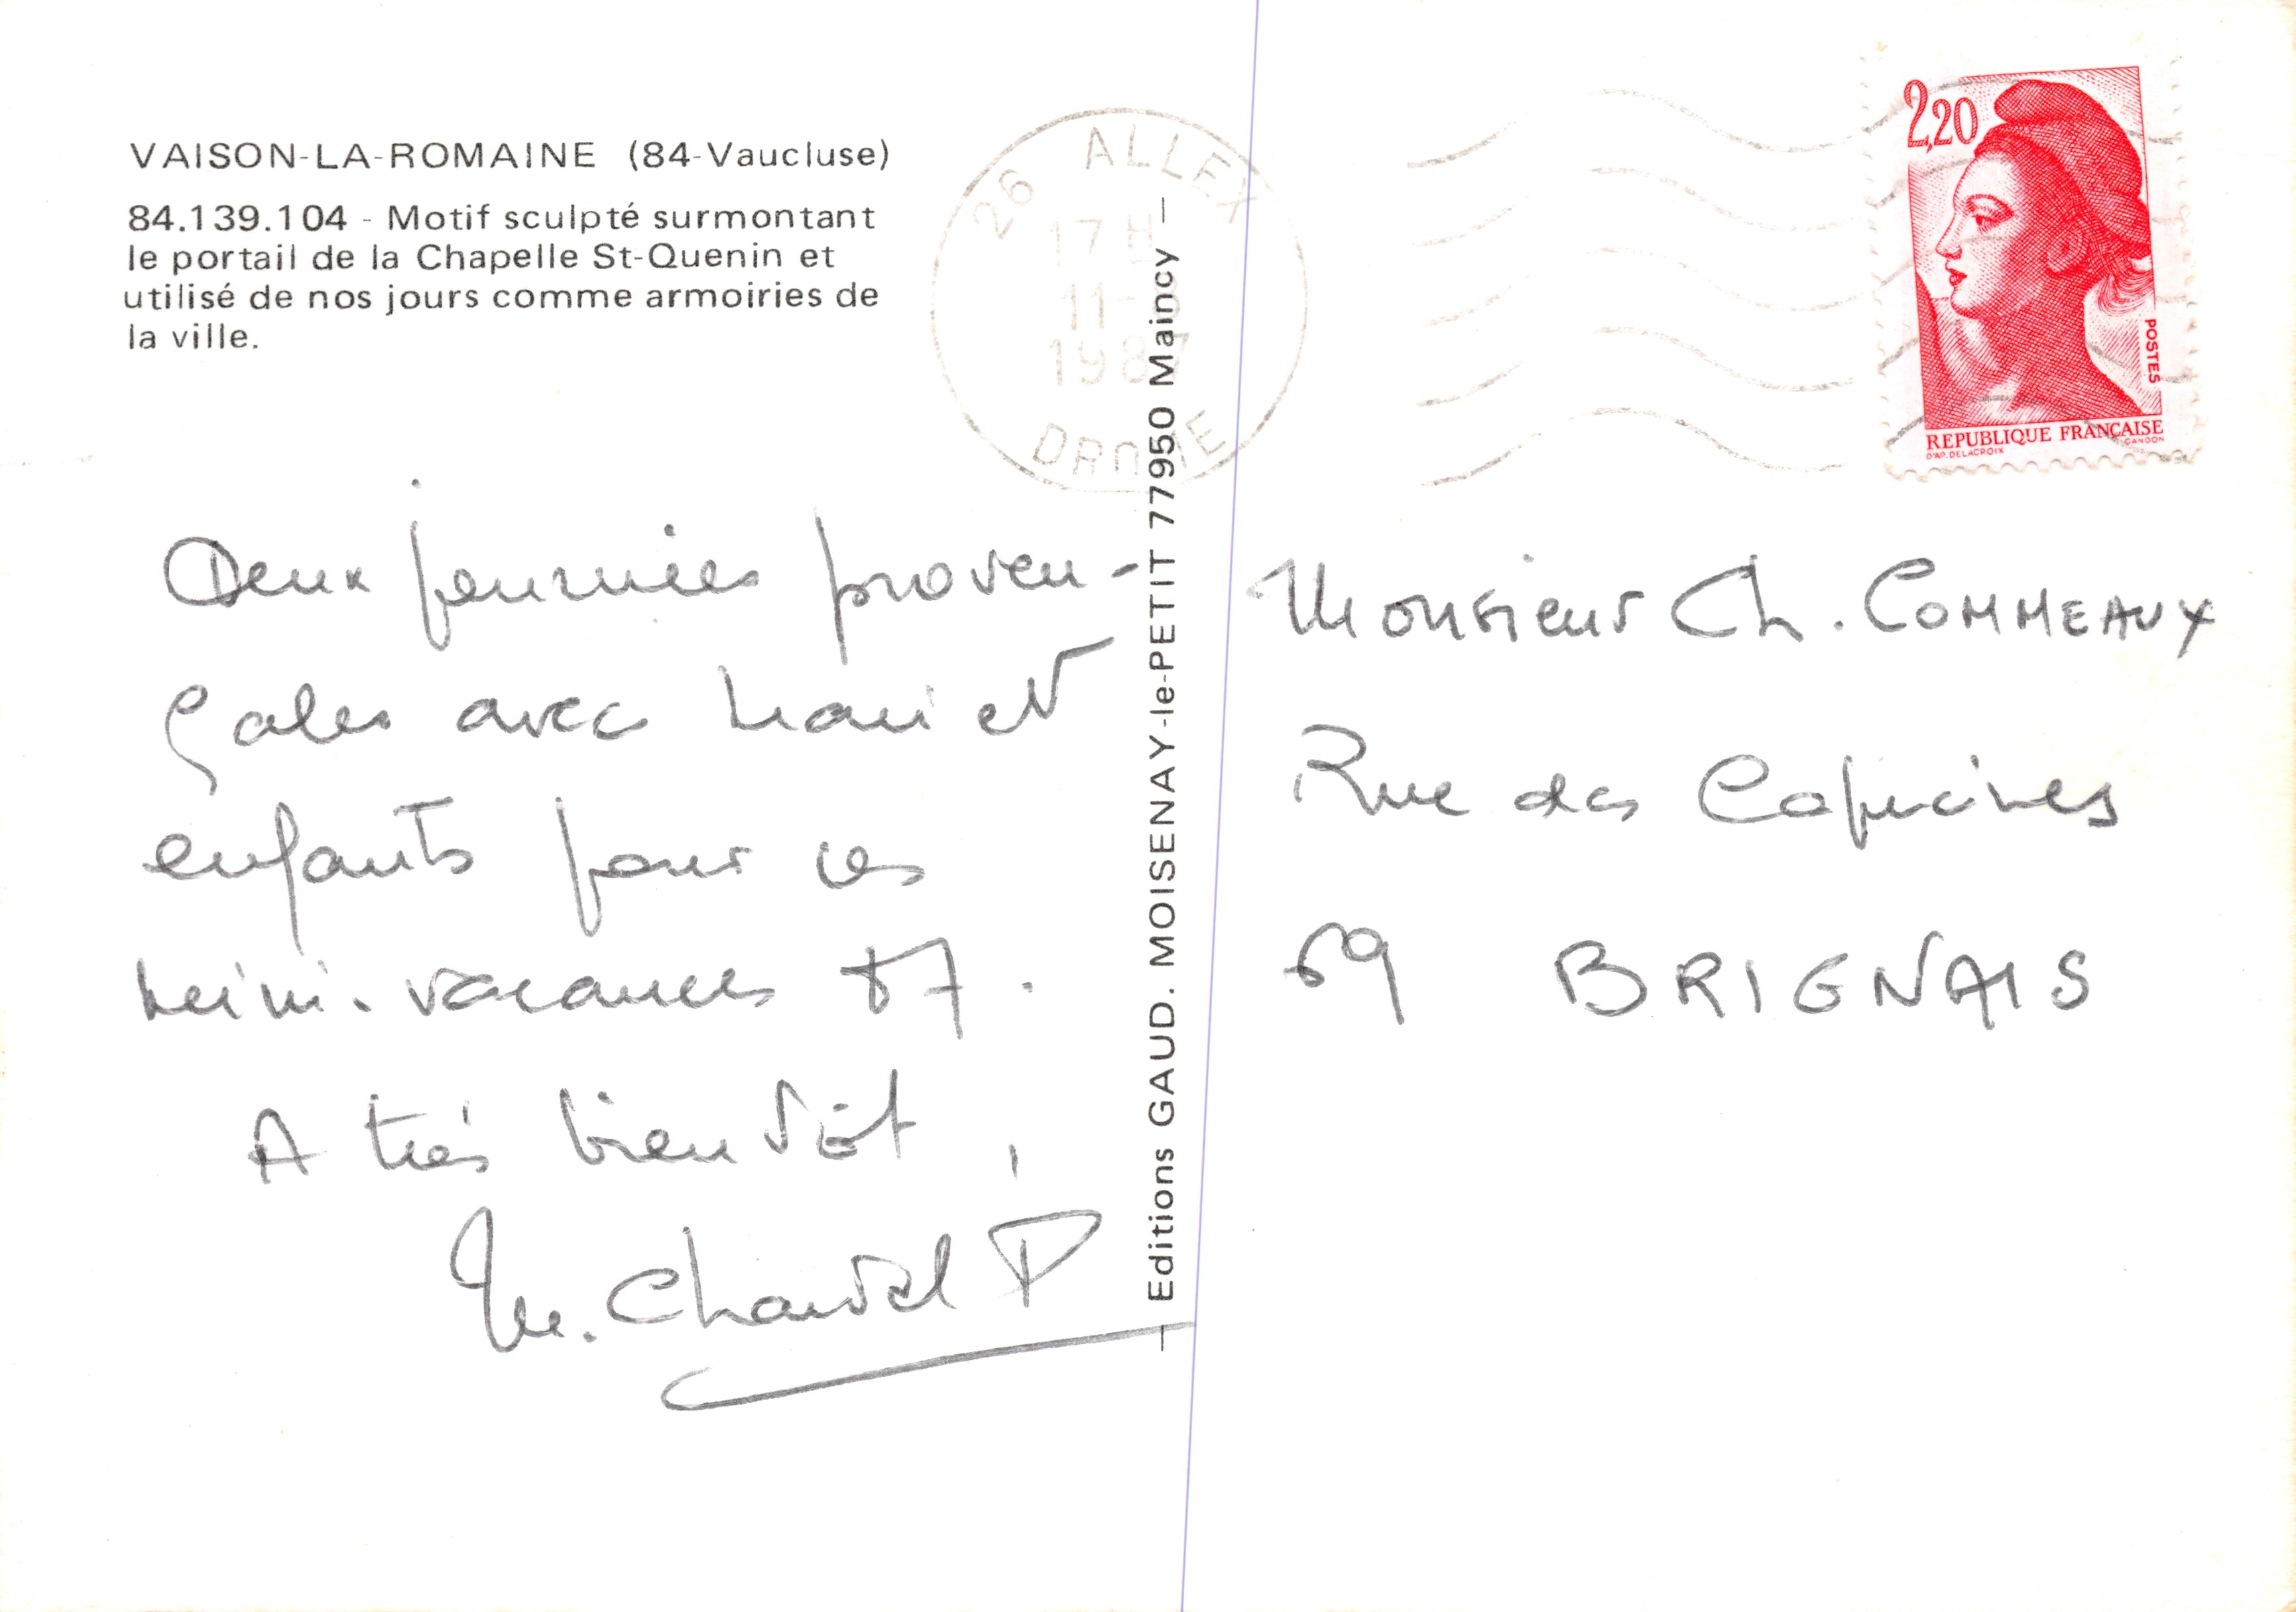 VAISON-LA-ROMAINE (84-Vaucluse)
84.139.104 - Motif sculpté surmontant
le portail de la Chapelle St-Quenin et
utilisé de nos jours comme armoiries de
la ville.
26 ALLEX
17 H
11-
1987
DROME
2,20
POSTES
REPUBLIQUE FRANÇAISE
D'AP. DELACROIX
GANDON
Deux journées proven-
çales avec mari et
enfants pour ces
mini-vacances 87.
A très bientôt,
M.
Editions GAUD. MOISENAY-le-PETIT 77950 Maincy
Monsieur Ch. COMMEAUX
Rue des Capucines
69 BRIGNAIS